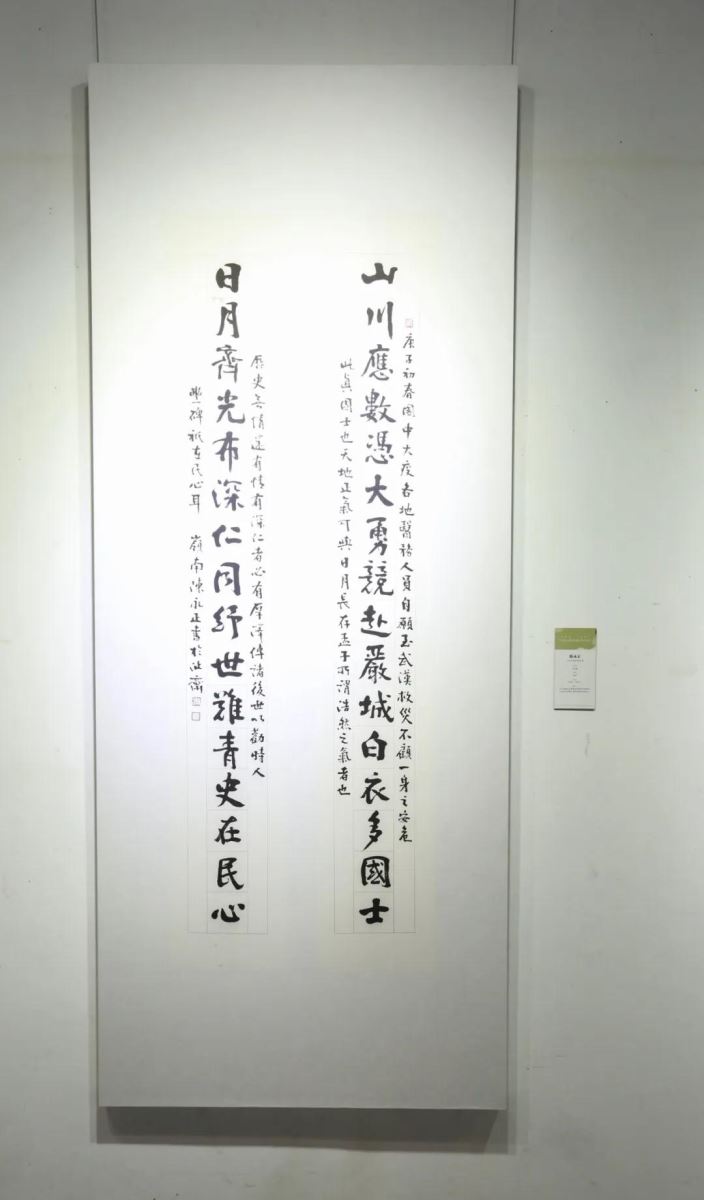 庚子初春國中大疫各地醫務人員自願至武漢救災不顧一身之安危
山川應數憑大勇競赴嚴城白衣多國士
此真國士也天地正氣可與日月長存孟子所謂浩然之氣者也
歷史無情還有情有深仁者必有厚澤傳諸後世以勸時人
日月齊光布深仁同紓世難青史在民心
豐碑祇在民心耳 嶺南陳永正書於沚齋